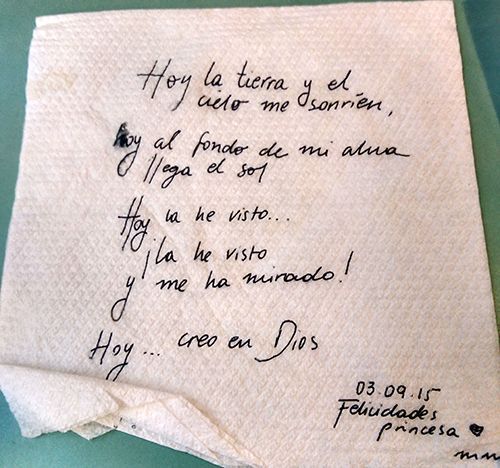 Hoy la tierra y el
cielo me sonríen,
hoy al fondo de mi alma
llega el sol
Hoy la he visto...
¡la he visto
y me ha mirado!
Hoy... creo en Dios
03.09.15
Felicidades
princesa